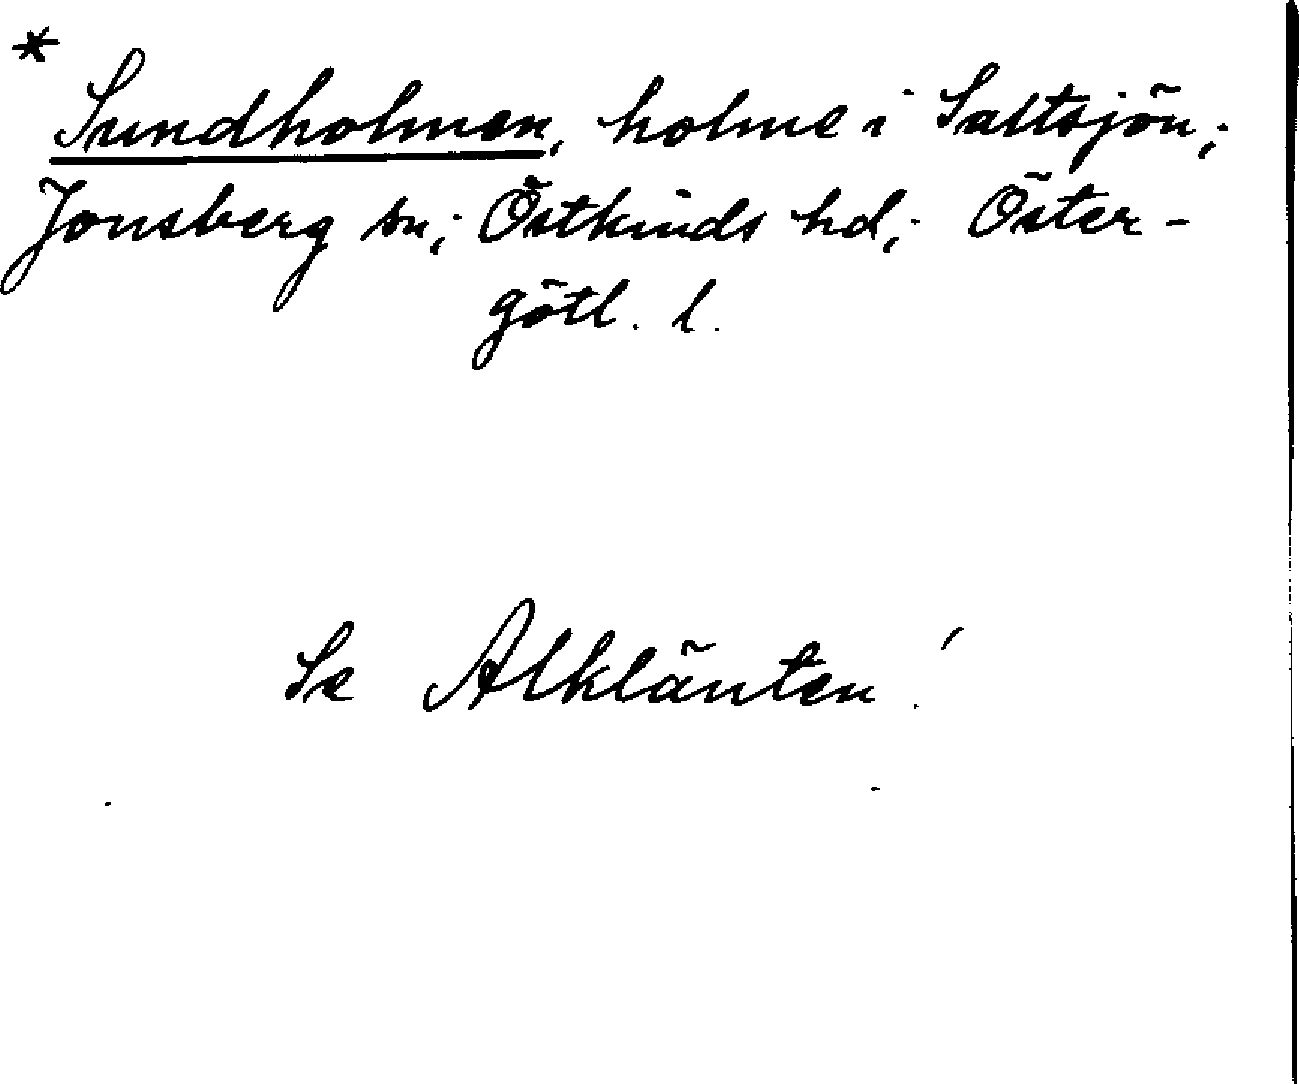 *
Sundholmen, holme i Saltsjön;
Jonsberg sn; Östkinds hd; Öster-
götl. l.
Se Alklänten!